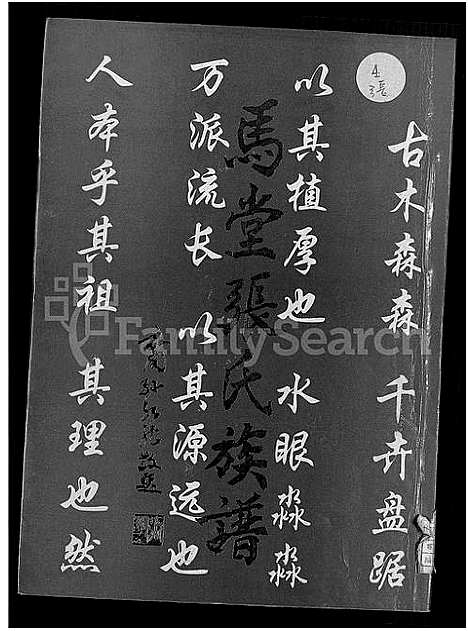 古木森森 千卉盘踞
以其植厚也 水眼淼淼
万派流长 以其源远也
人本乎其祖 其理也然
馬堂張氏族譜
4
張
FamilySearch